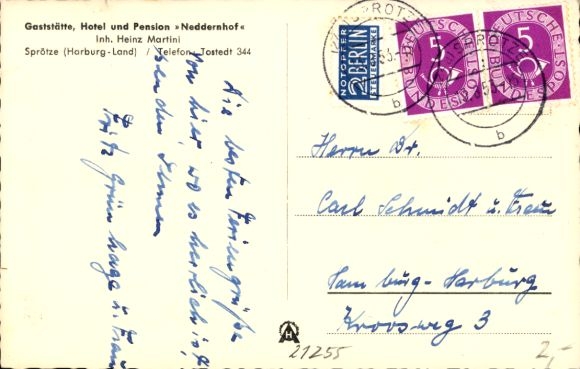 Gaststätte, Hotel und Pension »Neddernhof«
Inh. Heinz Martini
Sprötze (Harburg-Land) / Telefon: Tostedt 344
Die besten Feriengrüße
von hier, wo es herrlich ist,
senden Ihnen
Fritz Grünhage u. Frau
NOTOPFER
2 BERLIN
STEUERMARKE
5
DEUTSCHE
BUNDESPOST
5
DEUTSCHE
BUNDESPOST
SPRÖTZE
b
b
Herrn Dr.
Carl Schmidt u. Frau
Hamburg-Harburg
Kroosweg 3
21255
2,-